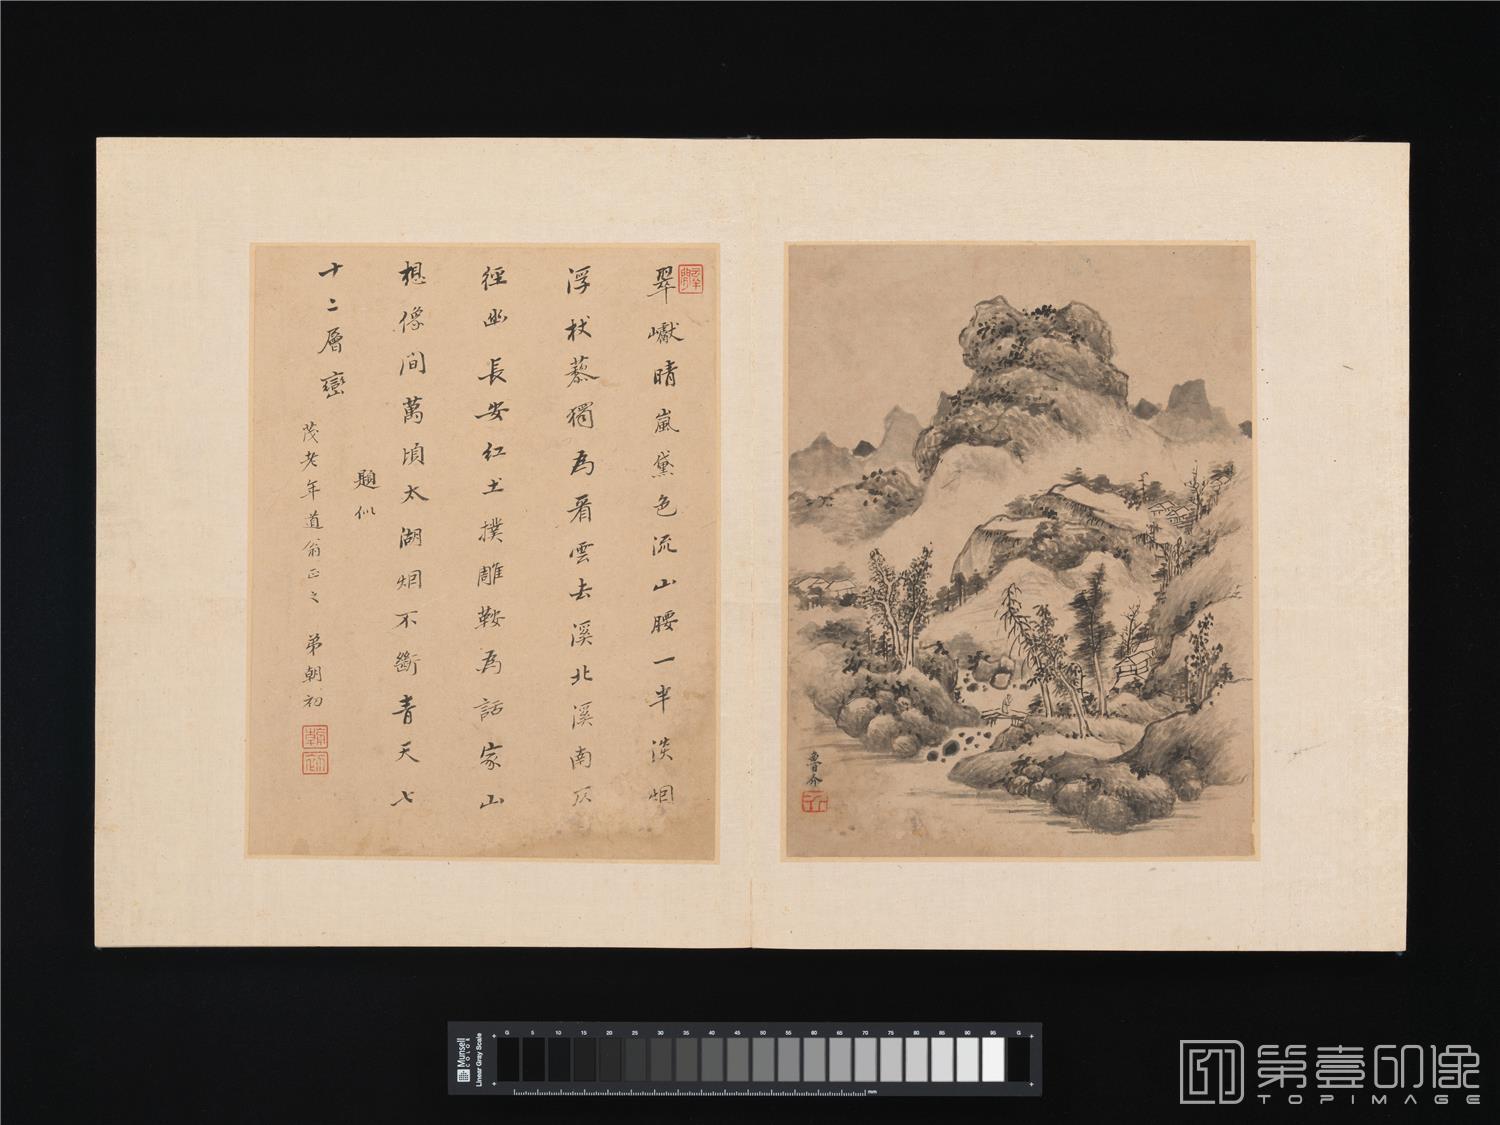 翠巘晴嵐黛色流山腰一半淡烟
浮杖藜獨為看雲去溪北溪南仄
徑幽長安紅土撲雕鞍為話家山
想像間萬頃太湖烟不斷青天七
十二層巒
題似
茂老年道翁正之 弟朝初
魯介
Munsell
COLOR
Linear Gray Scale
G 5 10 15 20 25 30 35 40 45 50 55 60 65 70 75 80 85 90 95 G
mm
第壹印像
TOPIMAGE